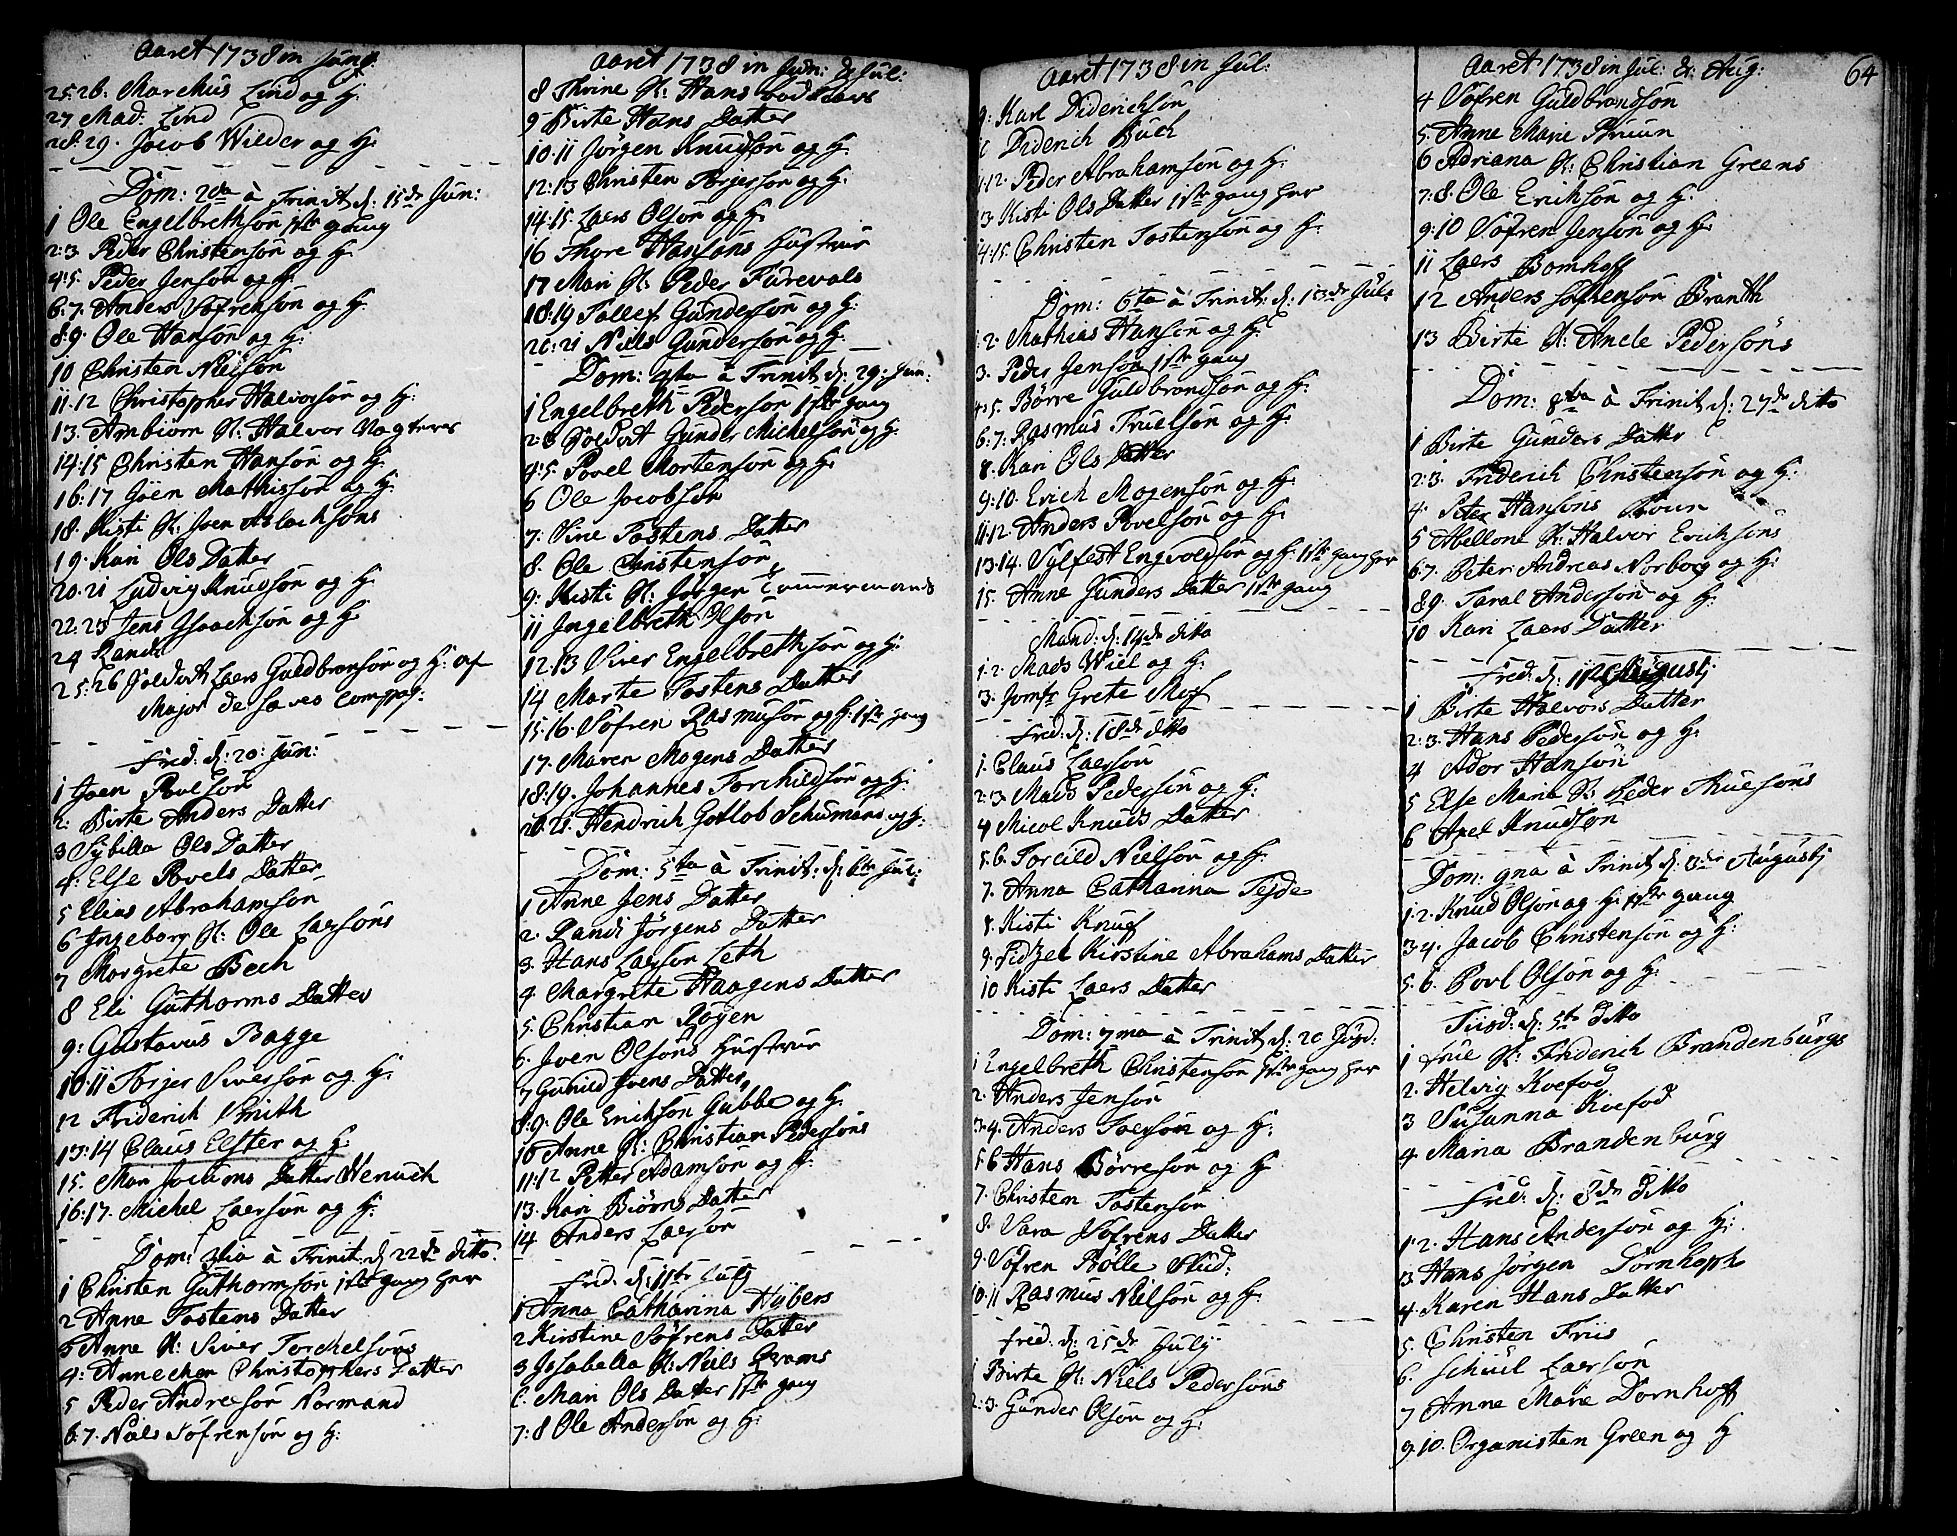 Aaret 1738 in Junj:
25:26. Marchus Lind og H:
27 Mad: Lind
28:29. Jacob Wilder og H:
Dom: 2da à Trinit: d: 15de Jun:
1 Ole Engelbrethsøn 1ste gang
2:3. Peder Christensøn og H:
4:5. Peder Jensøn og H:
6:7. Anders Søfrensøn og H:
8:9. Ole Hansøn og H:
10 Christen Nielsøn
11.12 Christopher Halvorsøn og H:
13. Ambiorn H: Halvor Vogteres
14:15 Christen Hansøn og H:
16:17 Joen Mathissøn og H:
18. Kisti H: Joen Aslachsøns
19. Kari Ols Datter
20.21 Ludvig Knudsøn og H:
22:23 Jens Isaachsøn og H:
24 Randi
25:26 Soldath Laers Guldbransøn og H: af
Major de Saves Compag:
Fred: d: 20: Jun:
1 Joen Povlsøn
2: Birte Anders Datter
3 Sybilla Ols Datter
4: Else Povels Datter
5 Elias Abrahamsøn
6 Ingeborg H: Ole Larsøns
7 Margrete Bech
8 Eli Guthorms Datter
9: Gustavus Bagge
10:11 Torjer Siversøn og H:
12 Friderich Smith
13:14 Claus Elster og H:
15. Mari Jochims Datter Wenuch
16:17. Michel Laersøn og H:
Dom: 3tia à Trinit: d: 22de ditto.
1 Christen Guthormsøn 1ste gang her
2 Anne Tostens Datter
3 Anne H: Siver Torchelsøns
4: Annechen Christophers Datter
5 Peder Andreesøn Normand
6:7. Niels Søfrensøn og H:
Aaret 1738 in Jun: & Jul:
8 Thrine H: Hans
9 Birte Hans Datter
10:11 Jørgen Knudsøn og H:
12:13 Christen Torjersøn og H:
14:15. Laers Olsøn og H:
16 Thyre Hansøns Hustrue
17 Mari H: Peder Furevals
18:19 Tollef Gundersøn og H:
20:21 Niels Gundersøn og H:
Dom: 4ta à Trinit: d: 29: Jun:
1 Engelbreth Pedersøn 1ste gang
2:3 Soldat Gunder Michelsøn og H:
4:5. Povel Mortensøn og H:
6 Ole Jacobsøn
7: Sine Tostens Datter
8. Ole Christensøn
9: Kisti H: Jørgen Tømmermands
11 Ingelbreth Olsøn
12:13 Siver Engelbrethsøn og H:
14 Marte Tostens Datter
15.16. Søfren Rasmusøn og H: 1ste gang
17. Maren Mogens Datter
18:19. Johannes Torchildsøn og H:
20:21. Hendrich Gotlob Schumans og H:
Dom: 5ta à Trinit: d: 6te Jul:
1 Anne Jens Datter
2. Randi Jørgens Datter
3. Hans Laersøn Leth
4 Margrete Haagens Datter
5. Christian Røyen
6. Joen Olsøns Hustrue
7 Gunild Ivens Datter
8:9. Ole Erichsøn Gubbe og H:
10 Anne H: Christian Pedersøns
11:12 Petter Adamsøn og H:
13. Kari Biørns Datter
14 Anders Laersøn
Fred: d: 11te Julj
1 Anna Catharina Hybers
2 Kirstine Søfrens Datter
3 Isabella H: Niels Brams
6. Mari Ols Datter 1ste gang
7:8 Ole Andersøn og H:
Aaret 1738 in Jul:
9: Karl Diderichsøn
Diderich Buch
11.12. Peder Abrahamsøn og H:
13 Kisti Ols Datter 1ste gang her
14:15. Christen Tostensøn og H:
Dom: 6ta à Trinit: d: 13de Jul:
1.2. Mathias Hansøn og H:
3. Peder Jensøn 1ste gang
4.5. Børre Guldbrandsøn og H:
6:7: Rasmus Truelsøn og H:
8. Kari Ols Datter
9:10. Erich Mogensøn og H:
11.12. Anders Povelsøn og H:
13:14. Sylfest Engvoldsøn og H: 1ste gang her
15. Anne Gunders Datter 1ste gang
Mand: d: 14de ditto
1.2. Mads Wiel og H:
3: Jomfr Grete
Fred: d: 18de ditto
1. Claus Laersøn
2:3. Mads Pedersøn og H:
4 Micol Knuds Datter
5.6. Torcild Nielsøn og H:
7. Anna Catharina Tejde
8. Kisti Knuf
9. Kirstine Abrahams Datter
10 Kisti Laers Datter
Dom: 7ma à Trinit: d: 20
1 Engelbreth Christensøn 1ste gang her
2. Anders Jensøn
3.4. Anders Toersøn og H:
5.6 Hans Børresøn og H:
7. Christen Tostensøn
8. Sara Søfrens Datter
9. Søfren Bølle Stud:
10.11 Rasmus Nielsøn og H:
Fred: d: 25de Julij
1 Birte H: Niels Pedersøns
2:3. Gunder Olsøn og H:
Aaret 1738 in Jul: & Aug: 64
4 Søfren Guldbrandsøn
5. Anne Marie Bruun
6 Adriana H: Christian Greens
7:8. Ole Erichsøn og H:
9:10 Søfren Jensøn og H:
11 Laers Bomhoff
12 Anders Branth
13 Birte H: Anele Pedersøns
Dom: 8va à Trinit: d: 27de ditto
1 Birte Gunders Datter
2:3. Friderich Christensøn og H:
4. Peter Hansøns
5 Abellone H: Halvor Erichsøns
6.7. Peter Andreas Norborg og H:
8.9. Taral Andersøn og H:
10 Kari Laers Datter
Fred: d: 1te Augustj
1 Birte Halvors Datter
2:3. Hans Pedersøn og H:
4 Ador Hansøn
5 Else Maria H: Peder Thuesøns
6 Axel Knudsøn
Dom: 9na à Trinit: d: 3de Augustj
1.2. Knud Olsøn og H: 1ste gang
3.4. Jacob Christensøn og H:
5.6. Povl Olsøn og H:
Tiisd: d: 5te ditto
1 frue H: Friderich Brandenburgs
2. Helvig Koefod
3 Susanna Koefod
4 Maria Brandenburg
Fred: d: 8de ditto
1.2. Hans Andersøn og H:
3 Hans Jørgen Dornhoph
4. Karen Hans Datter
5. Christen Friis
6. Schiul Laersøn
7 Anne Marie Dornhoff
9.10. Organisten Green og H: